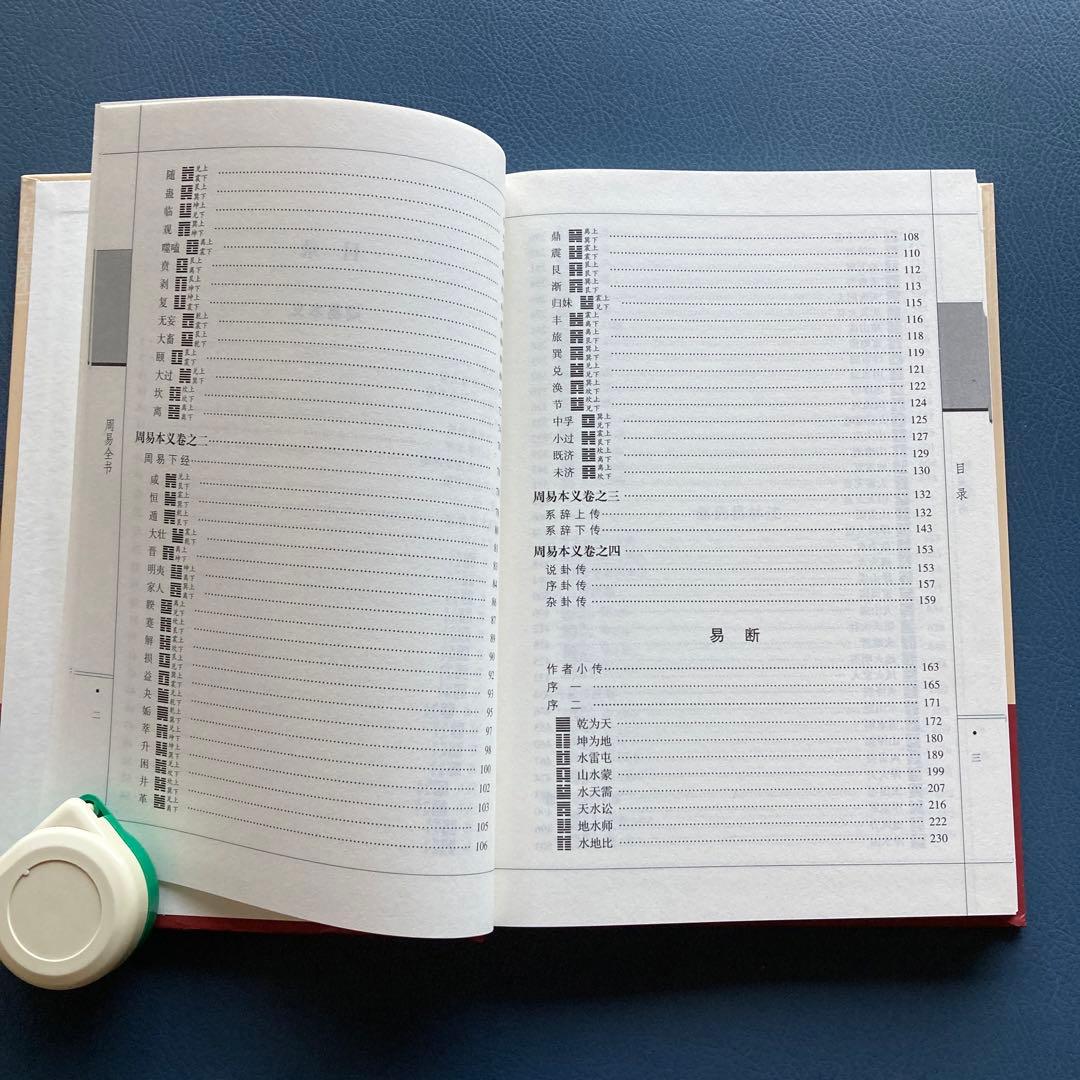 随 兑上 震下
蛊 艮上 巽下
临 坤上 兑下
观 巽上 坤下
噬嗑 离上 震下
贲 艮上 离下
剥 艮上 坤下
复 坤上 震下
无妄 乾上 震下
大畜 艮上 乾下
颐 艮上 震下
大过 兑上 巽下
坎 坎上 坎下
离 离上 离下
周易本义卷之二
周易下经
咸 兑上 艮下
恒 震上 巽下
遁 乾上 艮下 81
大壮 震上 乾下 83
晋 离上 坤下 84
明夷 坤上 离下 86
家人 巽上 离下 87
睽 离上 兑下 89
蹇 坎上 艮下 90
解 震上 坎下 92
损 艮上 兑下 93
益 巽上 震下 95
夬 兑上 乾下 97
姤 乾上 巽下 98
萃 兑上 坤下 100
升 坤上 巽下 102
困 兑上 坎下 103
井 坎上 巽下 105
革 兑上 离下 106
周易全书
二
鼎 离上 巽下 108
震 震上 震下 110
艮 艮上 艮下 112
渐 巽上 艮下 113
归妹 震上 兑下 115
丰 震上 离下 116
旅 离上 艮下 118
巽 巽上 巽下 119
兑 兑上 兑下 121
涣 巽上 坎下 122
节 坎上 兑下 124
中孚 巽上 兑下 125
小过 震上 艮下 127
既济 坎上 离下 129
未济 离上 坎下 130
周易本义卷之三 132
系辞上传 132
系辞下传 143
周易本义卷之四 153
说卦传 153
序卦传 157
杂卦传 159
易 断
作者小传 163
序 一 165
序 二 171
乾为天 172
坤为地 180
水雷屯 189
山水蒙 199
水天需 207
天水讼 216
地水师 222
水地比 230
目录
三